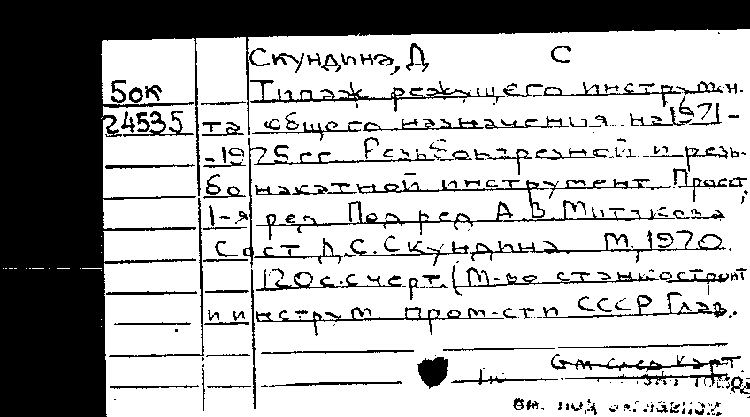 Скундина, Д С
Бок Типаж режущего инструмен.
24535 та общего назначения на 1971-
-1975 гг. Резьбонарезной и резь-
бо накатной инструмент. Проект,
1-я ред. Под ред А.В. Митякова
Сост Д.С. Скундина. М, 1970.
120 с. с черт. (М-во станкостроит
и инструм пром-сти СССР Глав.
См след карт.
см. под заглавием